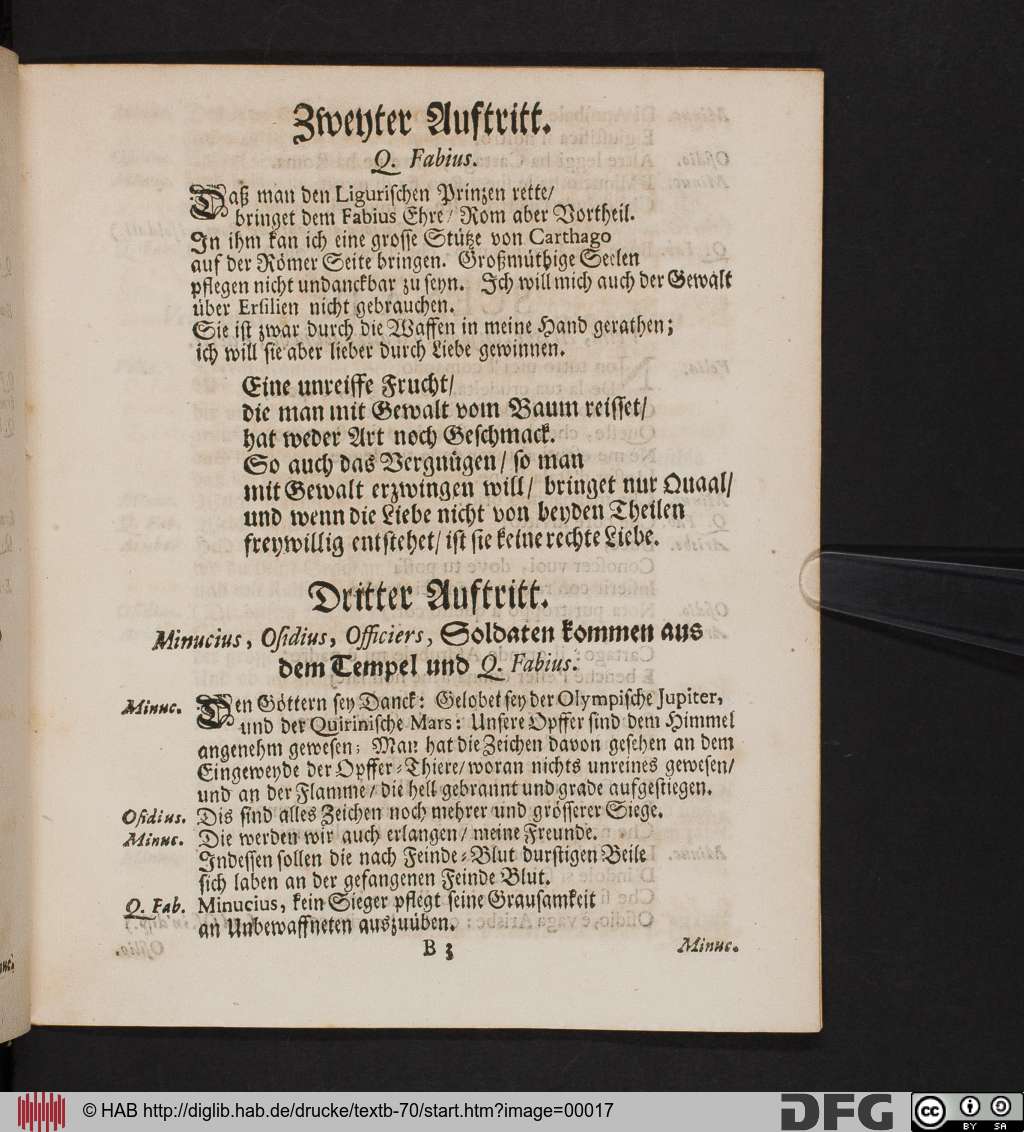 Zweyter Auftritt.
Q. Fabius.
Daß man den Ligurischen Prinzen rette/
bringet dem Fabius Ehre/ Rom aber Vortheil.
In ihm kan ich eine grosse Stütze von Carthago
auf der Römer Seite bringen. Großmüthige Seelen
pflegen nicht undanckbar zu seyn. Ich will mich auch der Gewalt
über Ersilien nicht gebrauchen.
Sie ist zwar durch die Waffen in meine Hand gerathen;
ich will sie aber lieber durch Liebe gewinnen.
Eine unreiffe Frucht/
die man mit Gewalt vom Baum reisset/
hat weder Art noch Geschmack.
So auch das Vergnügen/ so man
mit Gewalt erzwingen will/ bringet nur Quaal/
und wenn die Liebe nicht von beyden Theilen
freywillig entstehet/ ist sie keine rechte Liebe.
Dritter Auftritt.
Minucius, Osidius, Officiers, Soldaten kommen aus
dem Tempel und Q. Fabius.
Minuc. Den Göttern sey Danck: Gelobet sey der Olympische Jupiter,
und der Quirinische Mars: Unsere Opffer sind dem Himmel
angenehm gewesen; Man hat die Zeichen davon gesehen an dem
Eingeweyde der Opffer-Thiere/ woran nichts unreines gewesen/
und an der Flamme/ die hell gebrannt und grade aufgestiegen.
Osidius. Dis sind alles Zeichen noch mehrer und grösserer Siege.
Minuc. Die werden wir auch erlangen/ meine Freunde.
Indessen sollen die nach Feinde-Blut durstigen Beile
sich laben an der gefangenen Feinde Blut.
Q. Fab. Minucius, kein Sieger pflegt seine Grausamkeit
an Unbewaffneten auszuüben.
B 3 Minuc.
© HAB http://diglib.hab.de/drucke/textb-70/start.htm?image=00017
DFG
cc BY SA